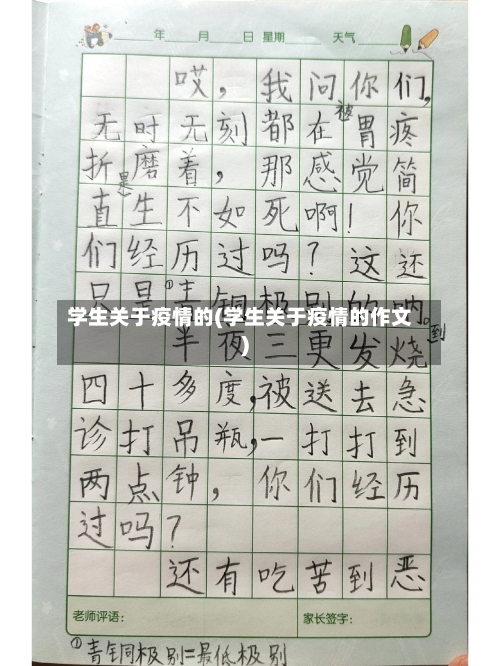 年 月 日 星期 天气
哎，我问你们，
无时无刻都在被胃疼
折磨着，那感觉简
直是生不如死啊！你
们经历过吗？这还
只是①青铜极别的呐。
学生关于疫情的(学生关于疫情的作文
)
半夜三更发烧到
四十多度，被送去急
诊打吊瓶，一打打到
两点钟，你们经历
过吗？
还有吃苦到恶
老师评语：
家长签字：
①青铜极别=最低极别